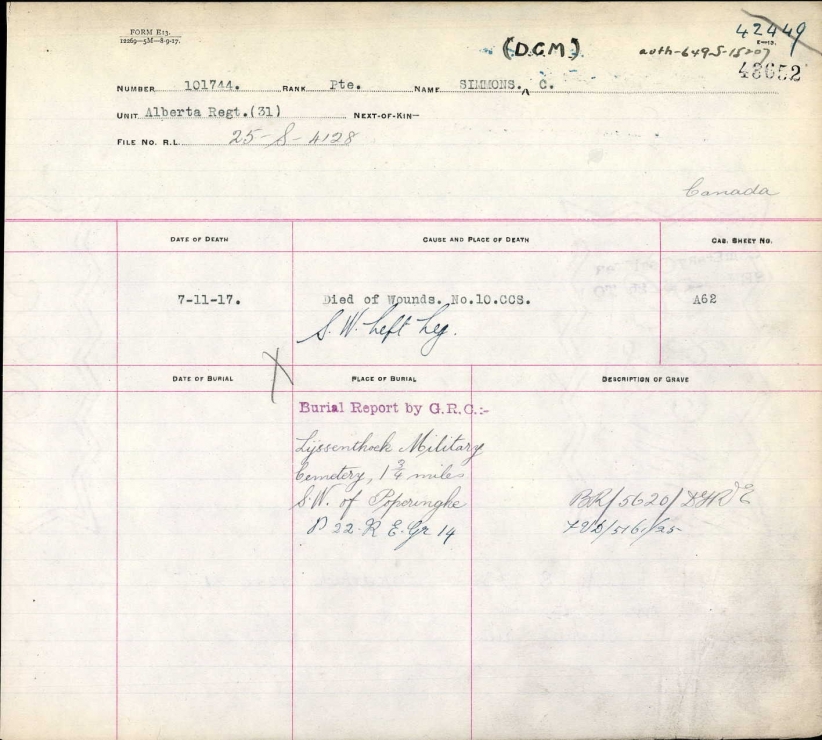 FORM E13.
12269—5M—8-9-17.
(DCM)
42449
E—13.
auth-649-S-15207
48652
NUMBER 101744. RANK Pte. NAME SIMMONS, C.
UNIT Alberta Regt.(31) NEXT-OF-KIN—
FILE NO. R.L. 25-S-4128
Canada
DATE OF DEATH CAUSE AND PLACE OF DEATH CAS. SHEET NO.
7-11-17. Died of Wounds. No.10.CCS. A62
S.W. Left Leg.
DATE OF BURIAL X PLACE OF BURIAL DESCRIPTION OF GRAVE
Burial Report by G.R.C.:-
Lijssenthoek Military
Cemetery, 1 3/4 miles
S.W. of Poperinghe BR/5620/
P 22. R E. Gr 14